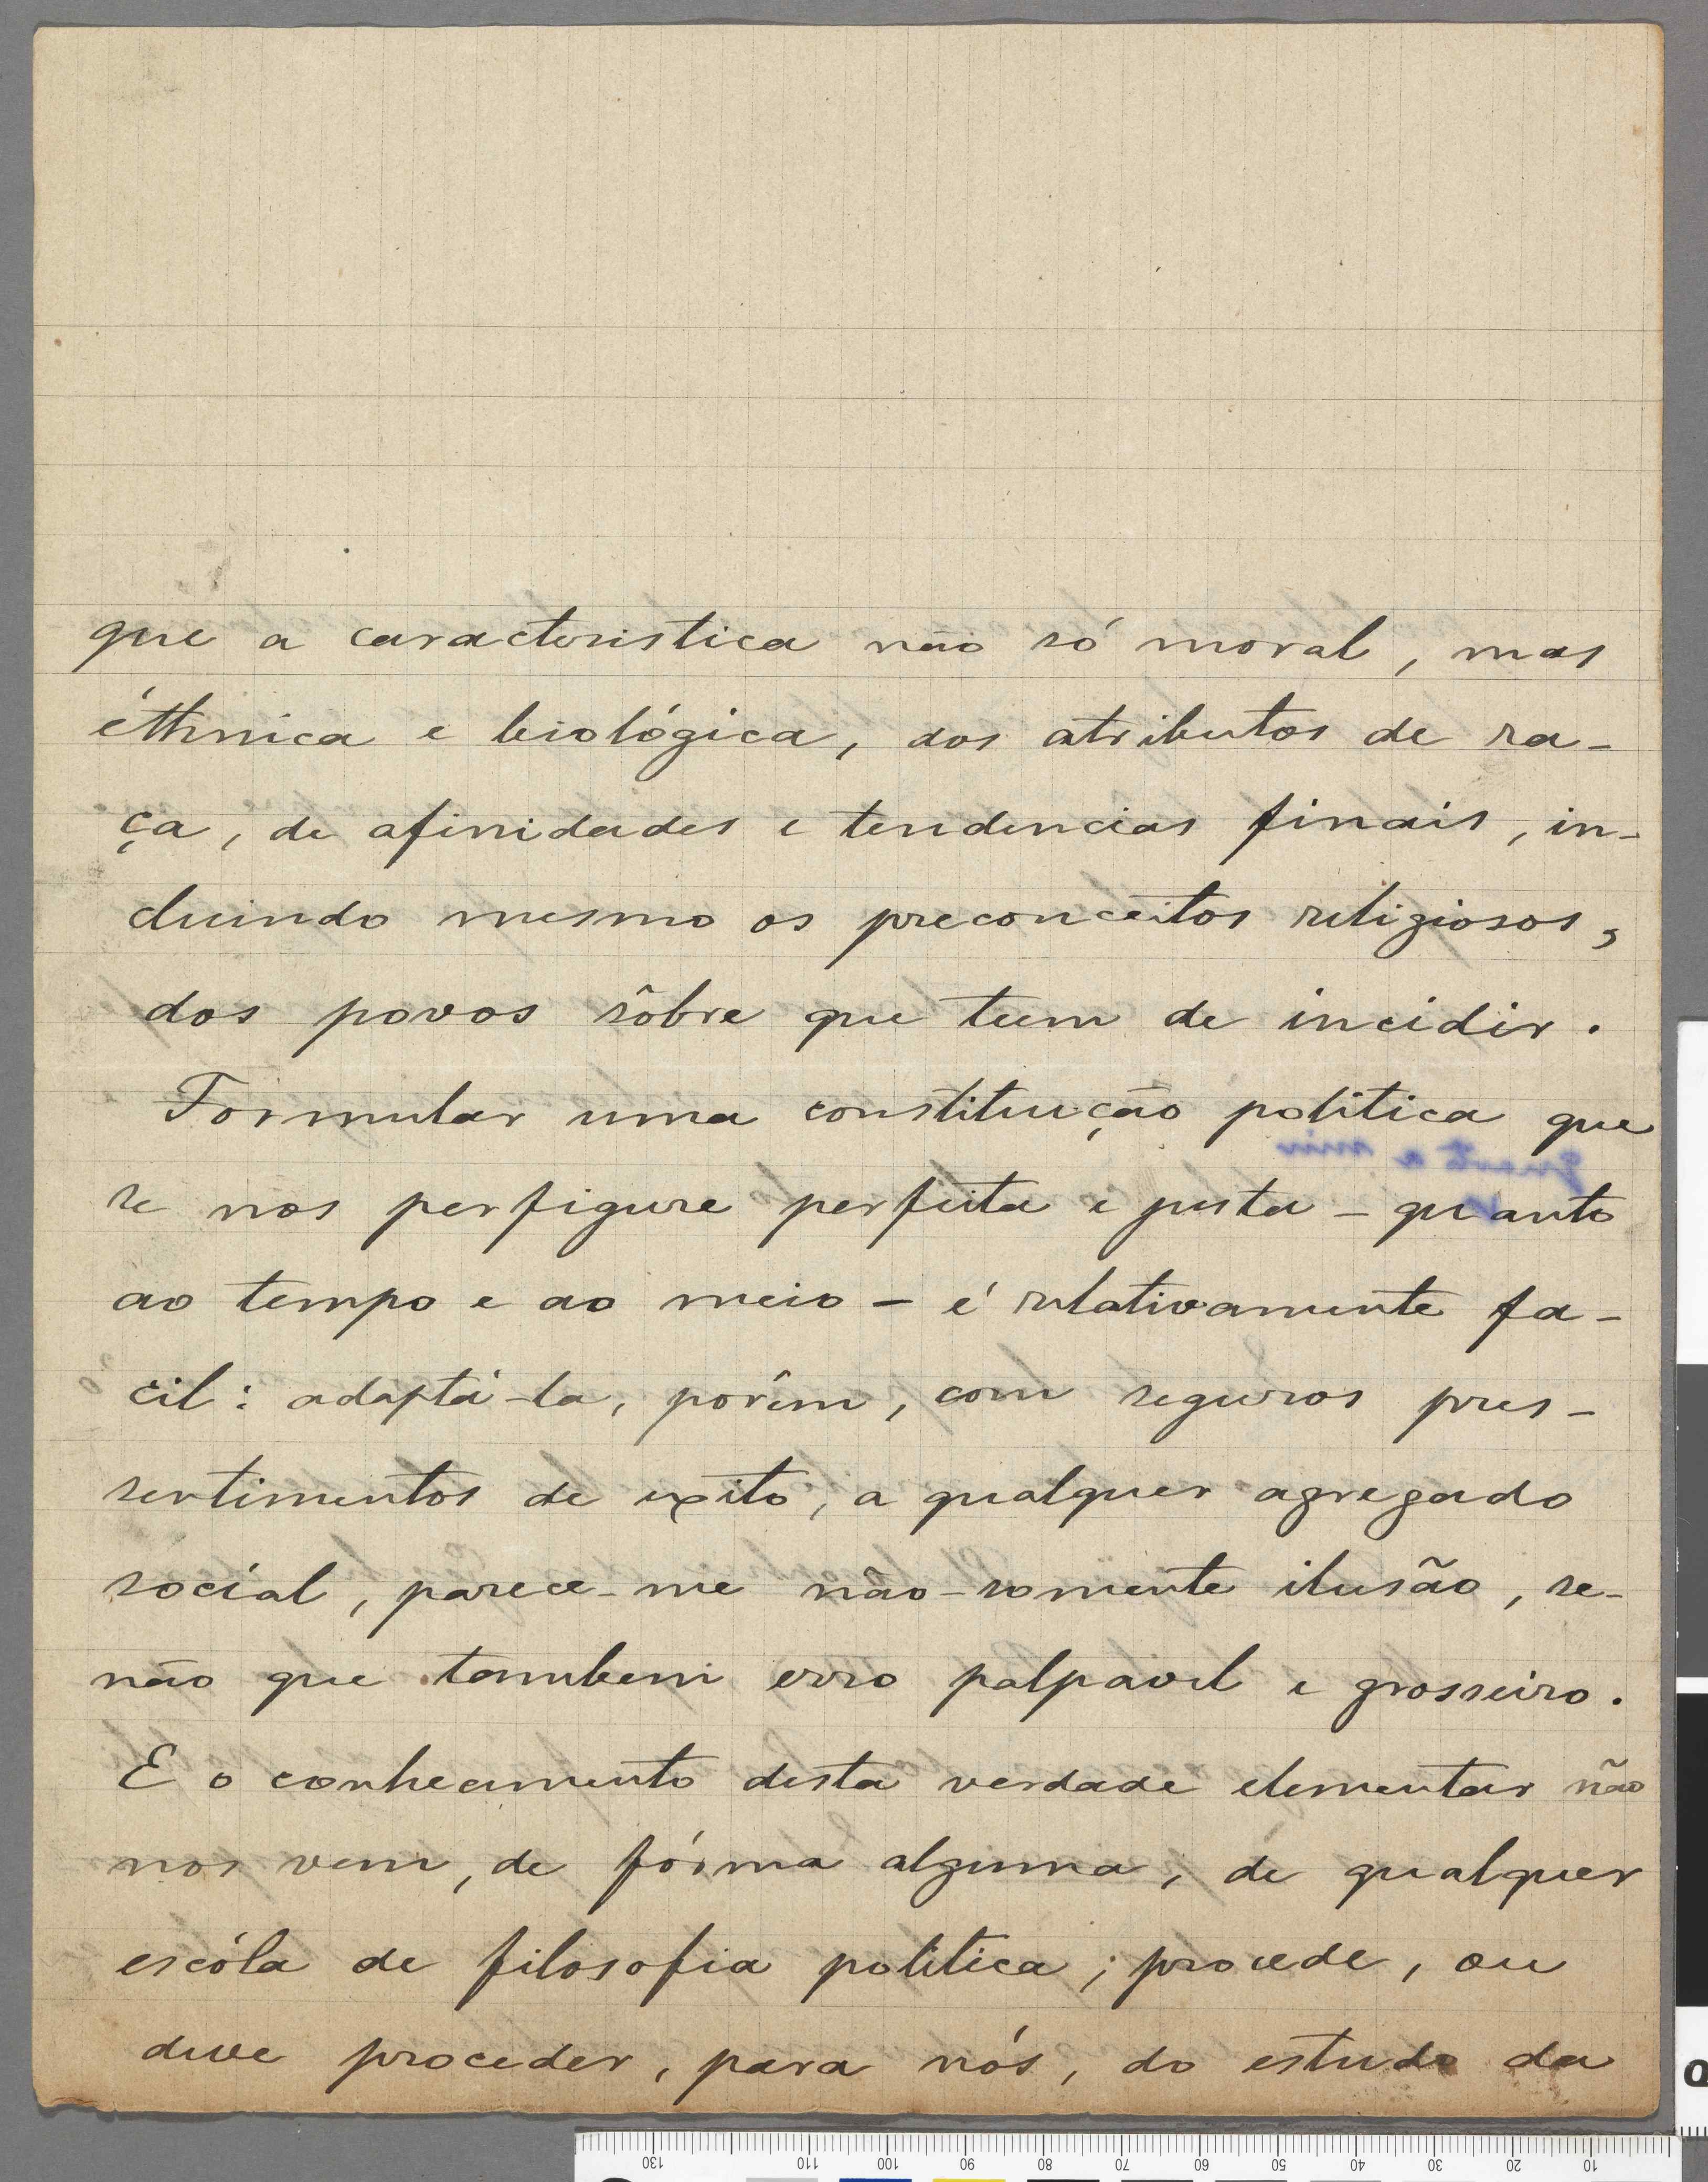 que a caracteristica não só moral, mas
éthnica e biológica, dos atributos de ra-
ça, de afinidades e tendencias finais, in-
cluindo mesmo os preconceitos religiosos,
dos povos sôbre que teem de incidir.
Formular uma constituição politica que
se nos perfigure perfeita e justa - quanto
ao tempo e ao meio - é relativamente fa-
cil: adaptá-la, porêm, com seguros pres-
sentimentos de exito, a qualquer agregado
social, parece-me não-somente ilusão, se-
não que tambem erro palpavel e grosseiro.
E o conhecimento desta verdade elementar não
nos vem, de fórma alguma, de qualquer
escóla de filosofia politica; procede, ou
deve proceder, para nós, do estudo da
130 110 100 90 80 70 60 50 40 30 20 10